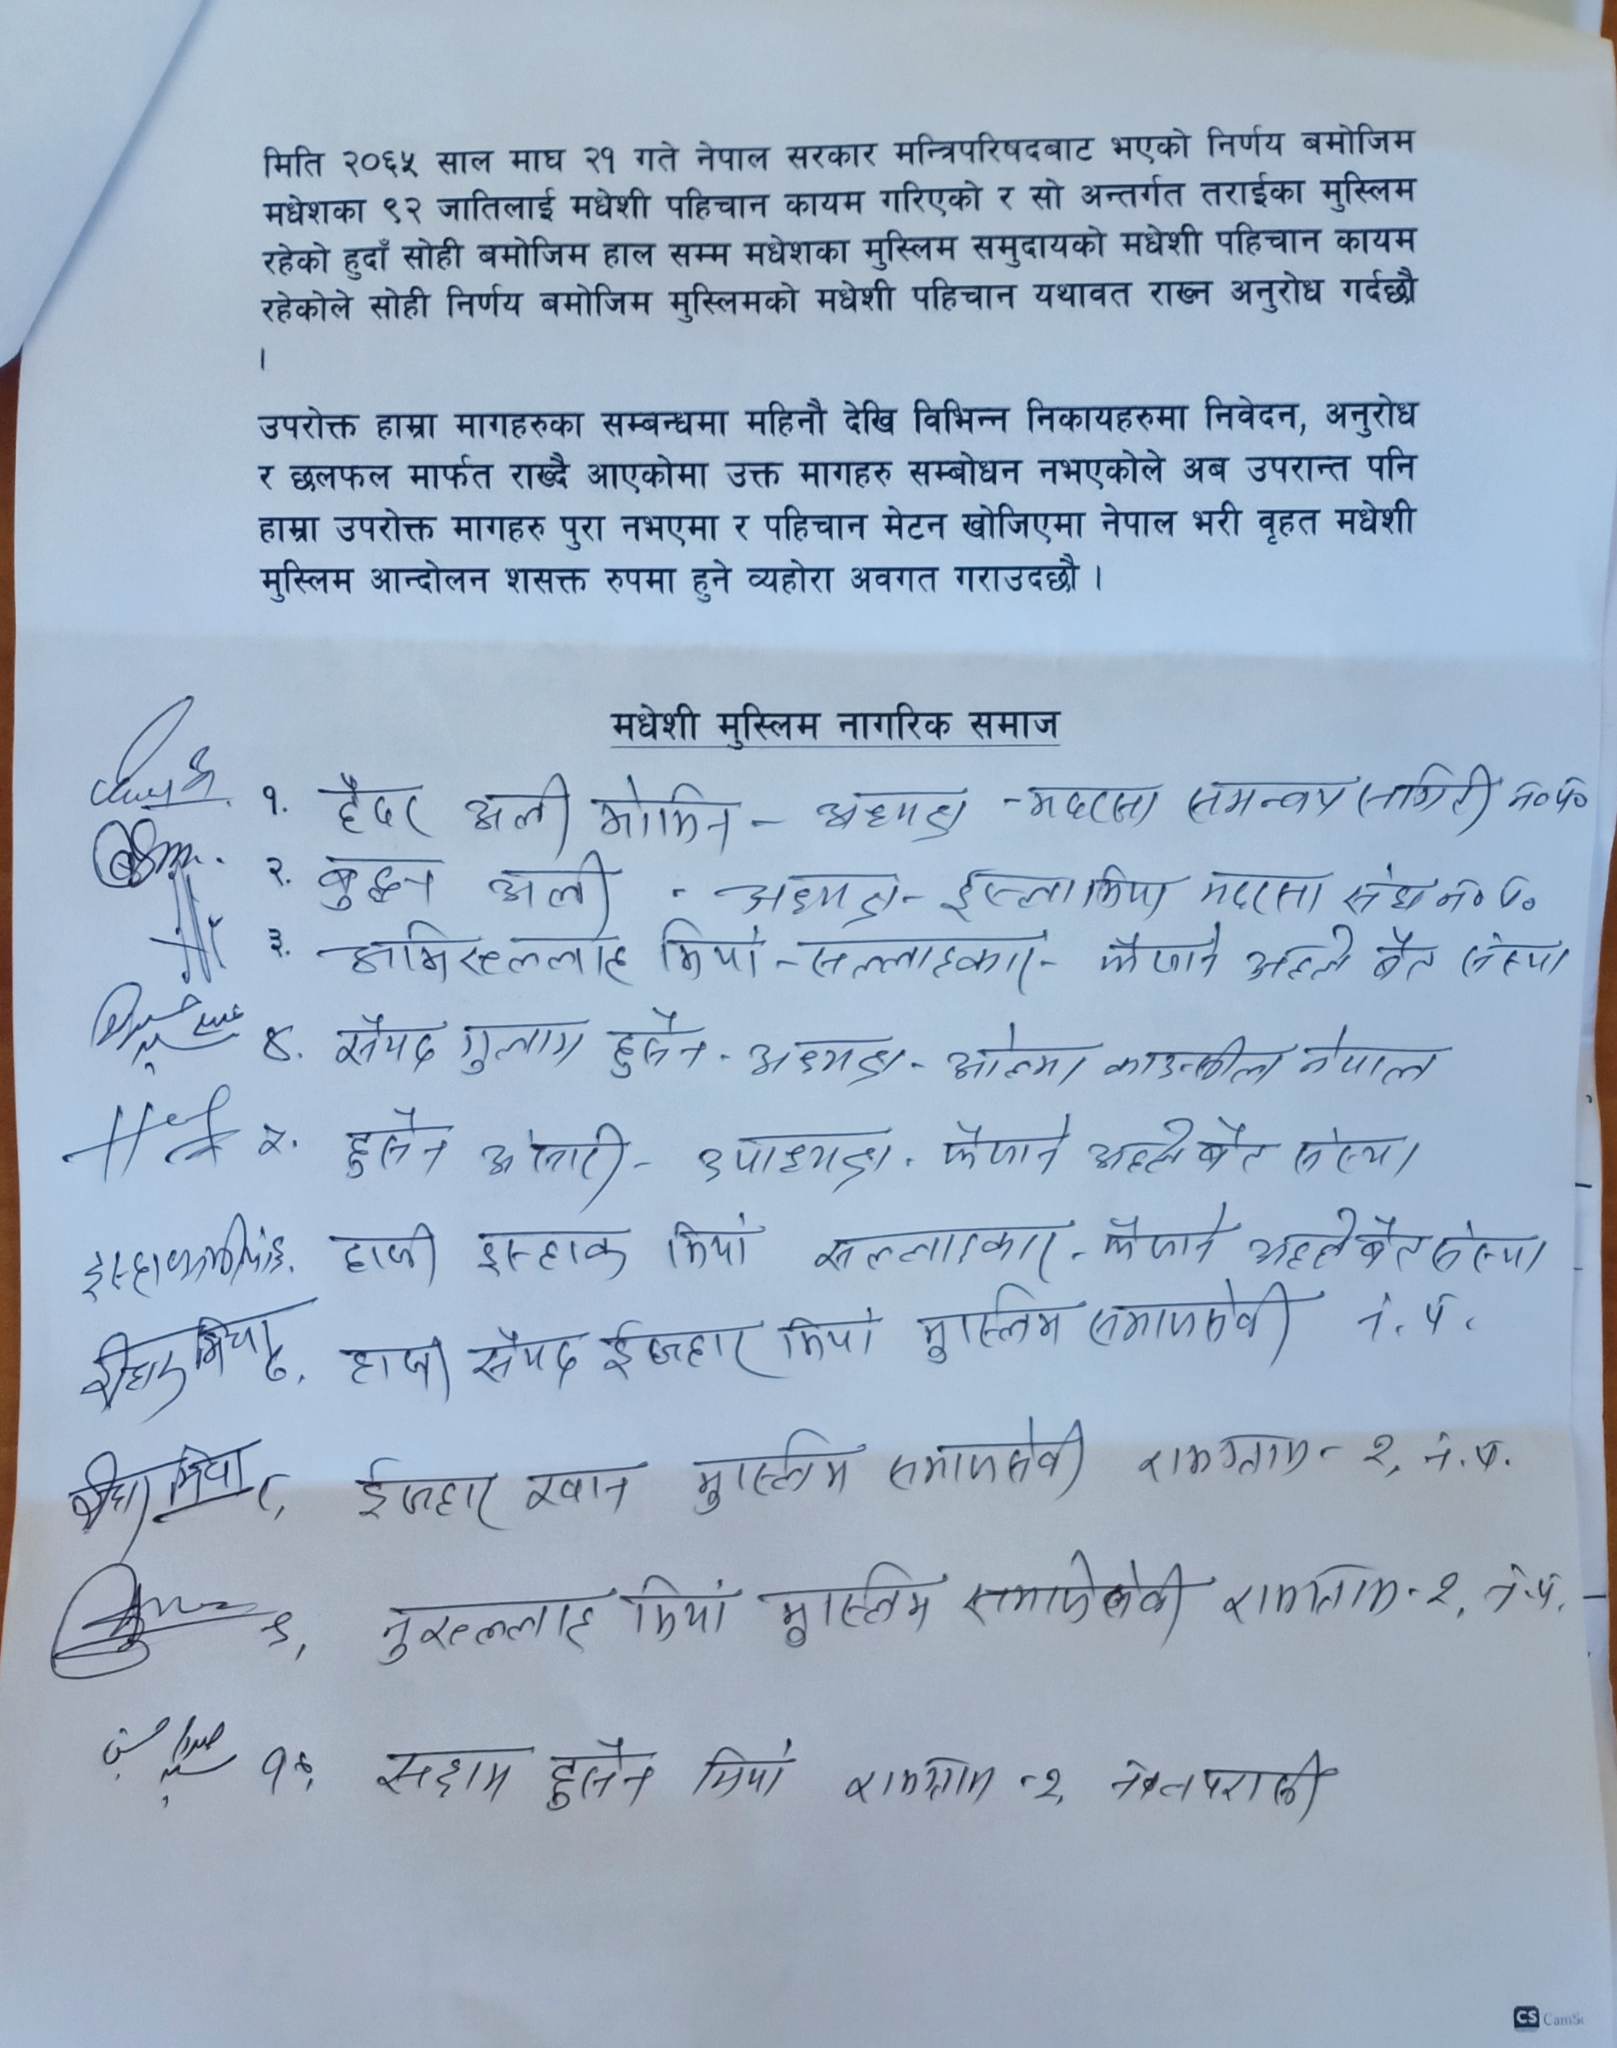 मिति २०६५ साल माघ २१ गते नेपाल सरकार मन्त्रिपरिषदबाट भएको निर्णय बमोजिम
मधेशका ९२ जातिलाई मधेशी पहिचान कायम गरिएको र सो अन्तर्गत तराईका मुस्लिम
रहेको हुदाँ सोही बमोजिम हाल सम्म मधेशका मुस्लिम समुदायको मधेशी पहिचान कायम
रहेकोले सोही निर्णय बमोजिम मुस्लिमको मधेशी पहिचान यथावत राख्न अनुरोध गर्दछौ
।
उपरोक्त हाम्रा मागहरुका सम्बन्धमा महिनौ देखि विभिन्न निकायहरुमा निवेदन, अनुरोध
र छलफल मार्फत राख्दै आएकोमा उक्त मागहरु सम्बोधन नभएकोले अब उपरान्त पनि
हाम्रा उपरोक्त मागहरु पुरा नभएमा र पहिचान मेटन खोजिएमा नेपाल भरी वृहत मधेशी
मुस्लिम आन्दोलन शसक्त रुपमा हुने व्यहोरा अवगत गराउदछौ ।
मधेशी मुस्लिम नागरिक समाज
१. हैदर अली मोमिन - अध्यक्ष - मदरसा समन्वय समिति न०प०
२. बुद्धन अली - अध्यक्ष - इस्लामिया मदरसा संघ न०प०
३. अमिरुल्लाह मियां - सल्लाहकार - फैजाने अहले बैत संस्था
४. सैयद गुलाम हुसैन - अध्यक्ष - ओलमा काउन्सील नेपाल
५. हुसैन अंसारी - उपाध्यक्ष - फैजाने अहले बैत संस्था
हाजी इस्हाक मियां सल्लाहकार - फैजाने अहले बैत संस्था
हाजी सैयद ईजहार मियां मुस्लिम समाजसेवी न.प.
८, ईजहार खान मुस्लिम समाजसेवी रामग्राम - २, न.प.
९, नुरुल्लाह मियां मुस्लिम समाजसेवी रामग्राम - २, न.प.
१०, सद्दाम हुसैन मियां रामग्राम - २, नवलपरासी
CS CamSc